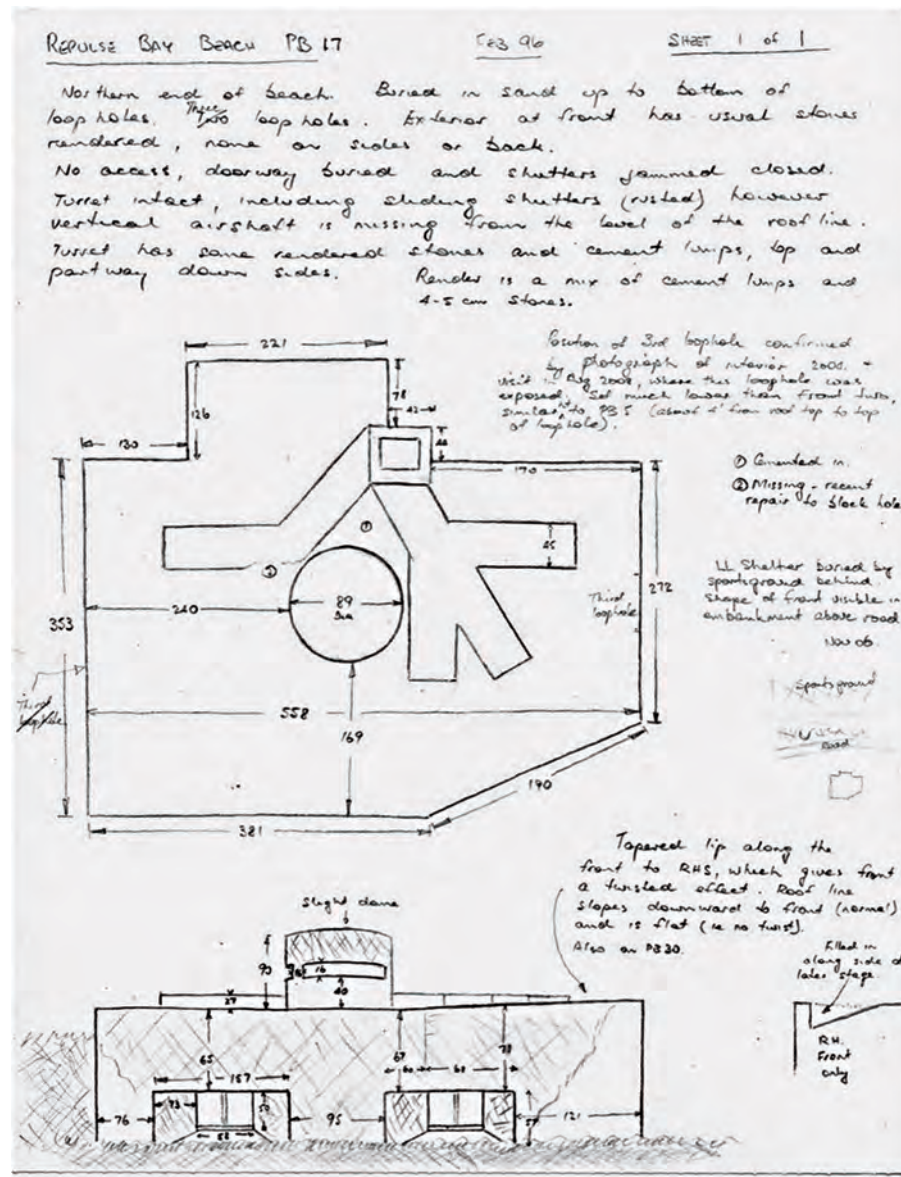 REPULSE BAY BEACH PB 17
FEB 96
SHEET 1 of 1
Northern end of beach. Buried in sand up to bottom of
loop holes. Three Two loop holes. Exterior at front has usual stones
rendered, none on sides or back.
No access, doorway buried and shutters jammed closed.
Turret intact, including sliding shutters (rusted) however
vertical airshaft is missing from the level of the roof line.
Turret has some rendered stones and cement lumps, top and
part way down sides.
Render is a mix of cement lumps and
4-5 cm stones.
Position of 3rd loophole confirmed
by photograph of interior
visit in Aug, where this loophole was
exposed. Set much lower than front two,
similar to PB 5 (about 4' from roof top to top
of loophole).
221
126
78
42
130
44
170
① Cemented in.
② Missing - recent
repair to block hole
①
②
45
LL Shelter buried by
sportsground behind.
Shape of front visible in
embankment above road
Nov 06
240
89
Dia
Third
loophole
272
353
Third
loophole
558
169
Sportsground
road
190
381
Tapered lip along the
front to RHS, which gives front
a twisted effect. Roof line
slopes downward to front (normal)
and is flat (ie no twist).
Also on PB30.
Slight dome
Filled in
along side at
later stage.
90
16
40
27
65
67
78
RH.
Front
only
157
60
60
73
50
76
58
95
121